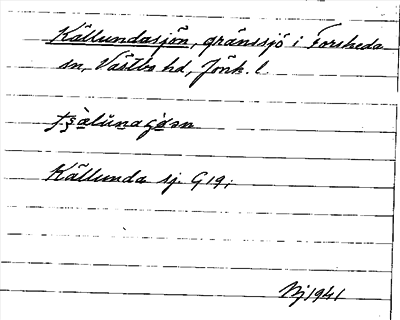 Källundasjön, gränssjö i Forsheda
sn, Västbo hd, Jönk. l.
Källunda sj. G 19;
1941